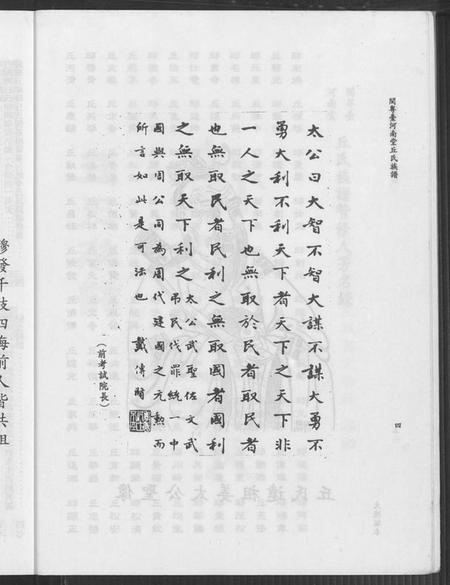 閩粵臺河南堂丘氏族譜
四
太公曰大智不智大謀不謀大勇不
勇大利不利天下者天下之天下非
一人之天下也無取於民者取民者
也無取民者民利之無取國者國利
之無取天下者天下利之太公武聖佐文武
弔民伐罪統一中
國與周公同為周代建國之元勳而
所言如此是可法也 戴傳賢
(前考試院長)
穆發千枝四海前人皆共祖